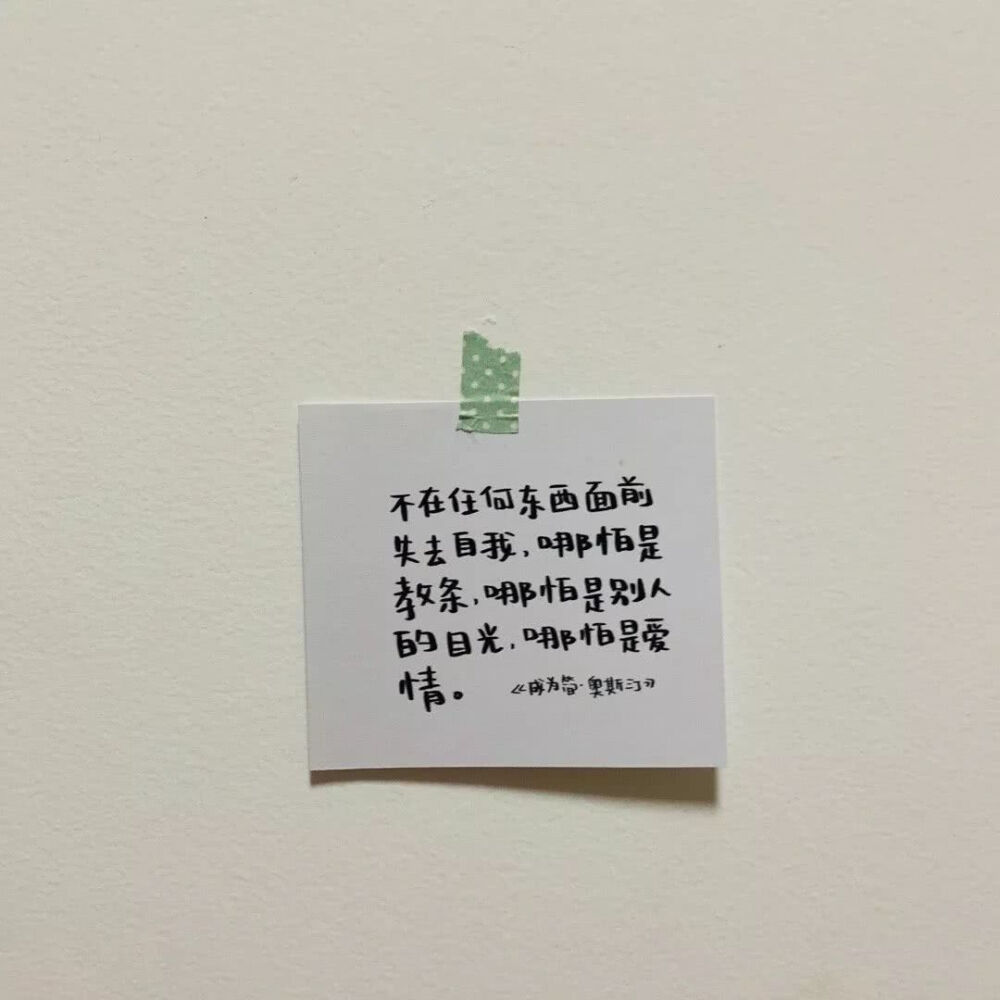 不在任何东西面前
失去自我,哪怕是
教条,哪怕是别人
的目光,哪怕是爱
情。 《成为简·奥斯汀》